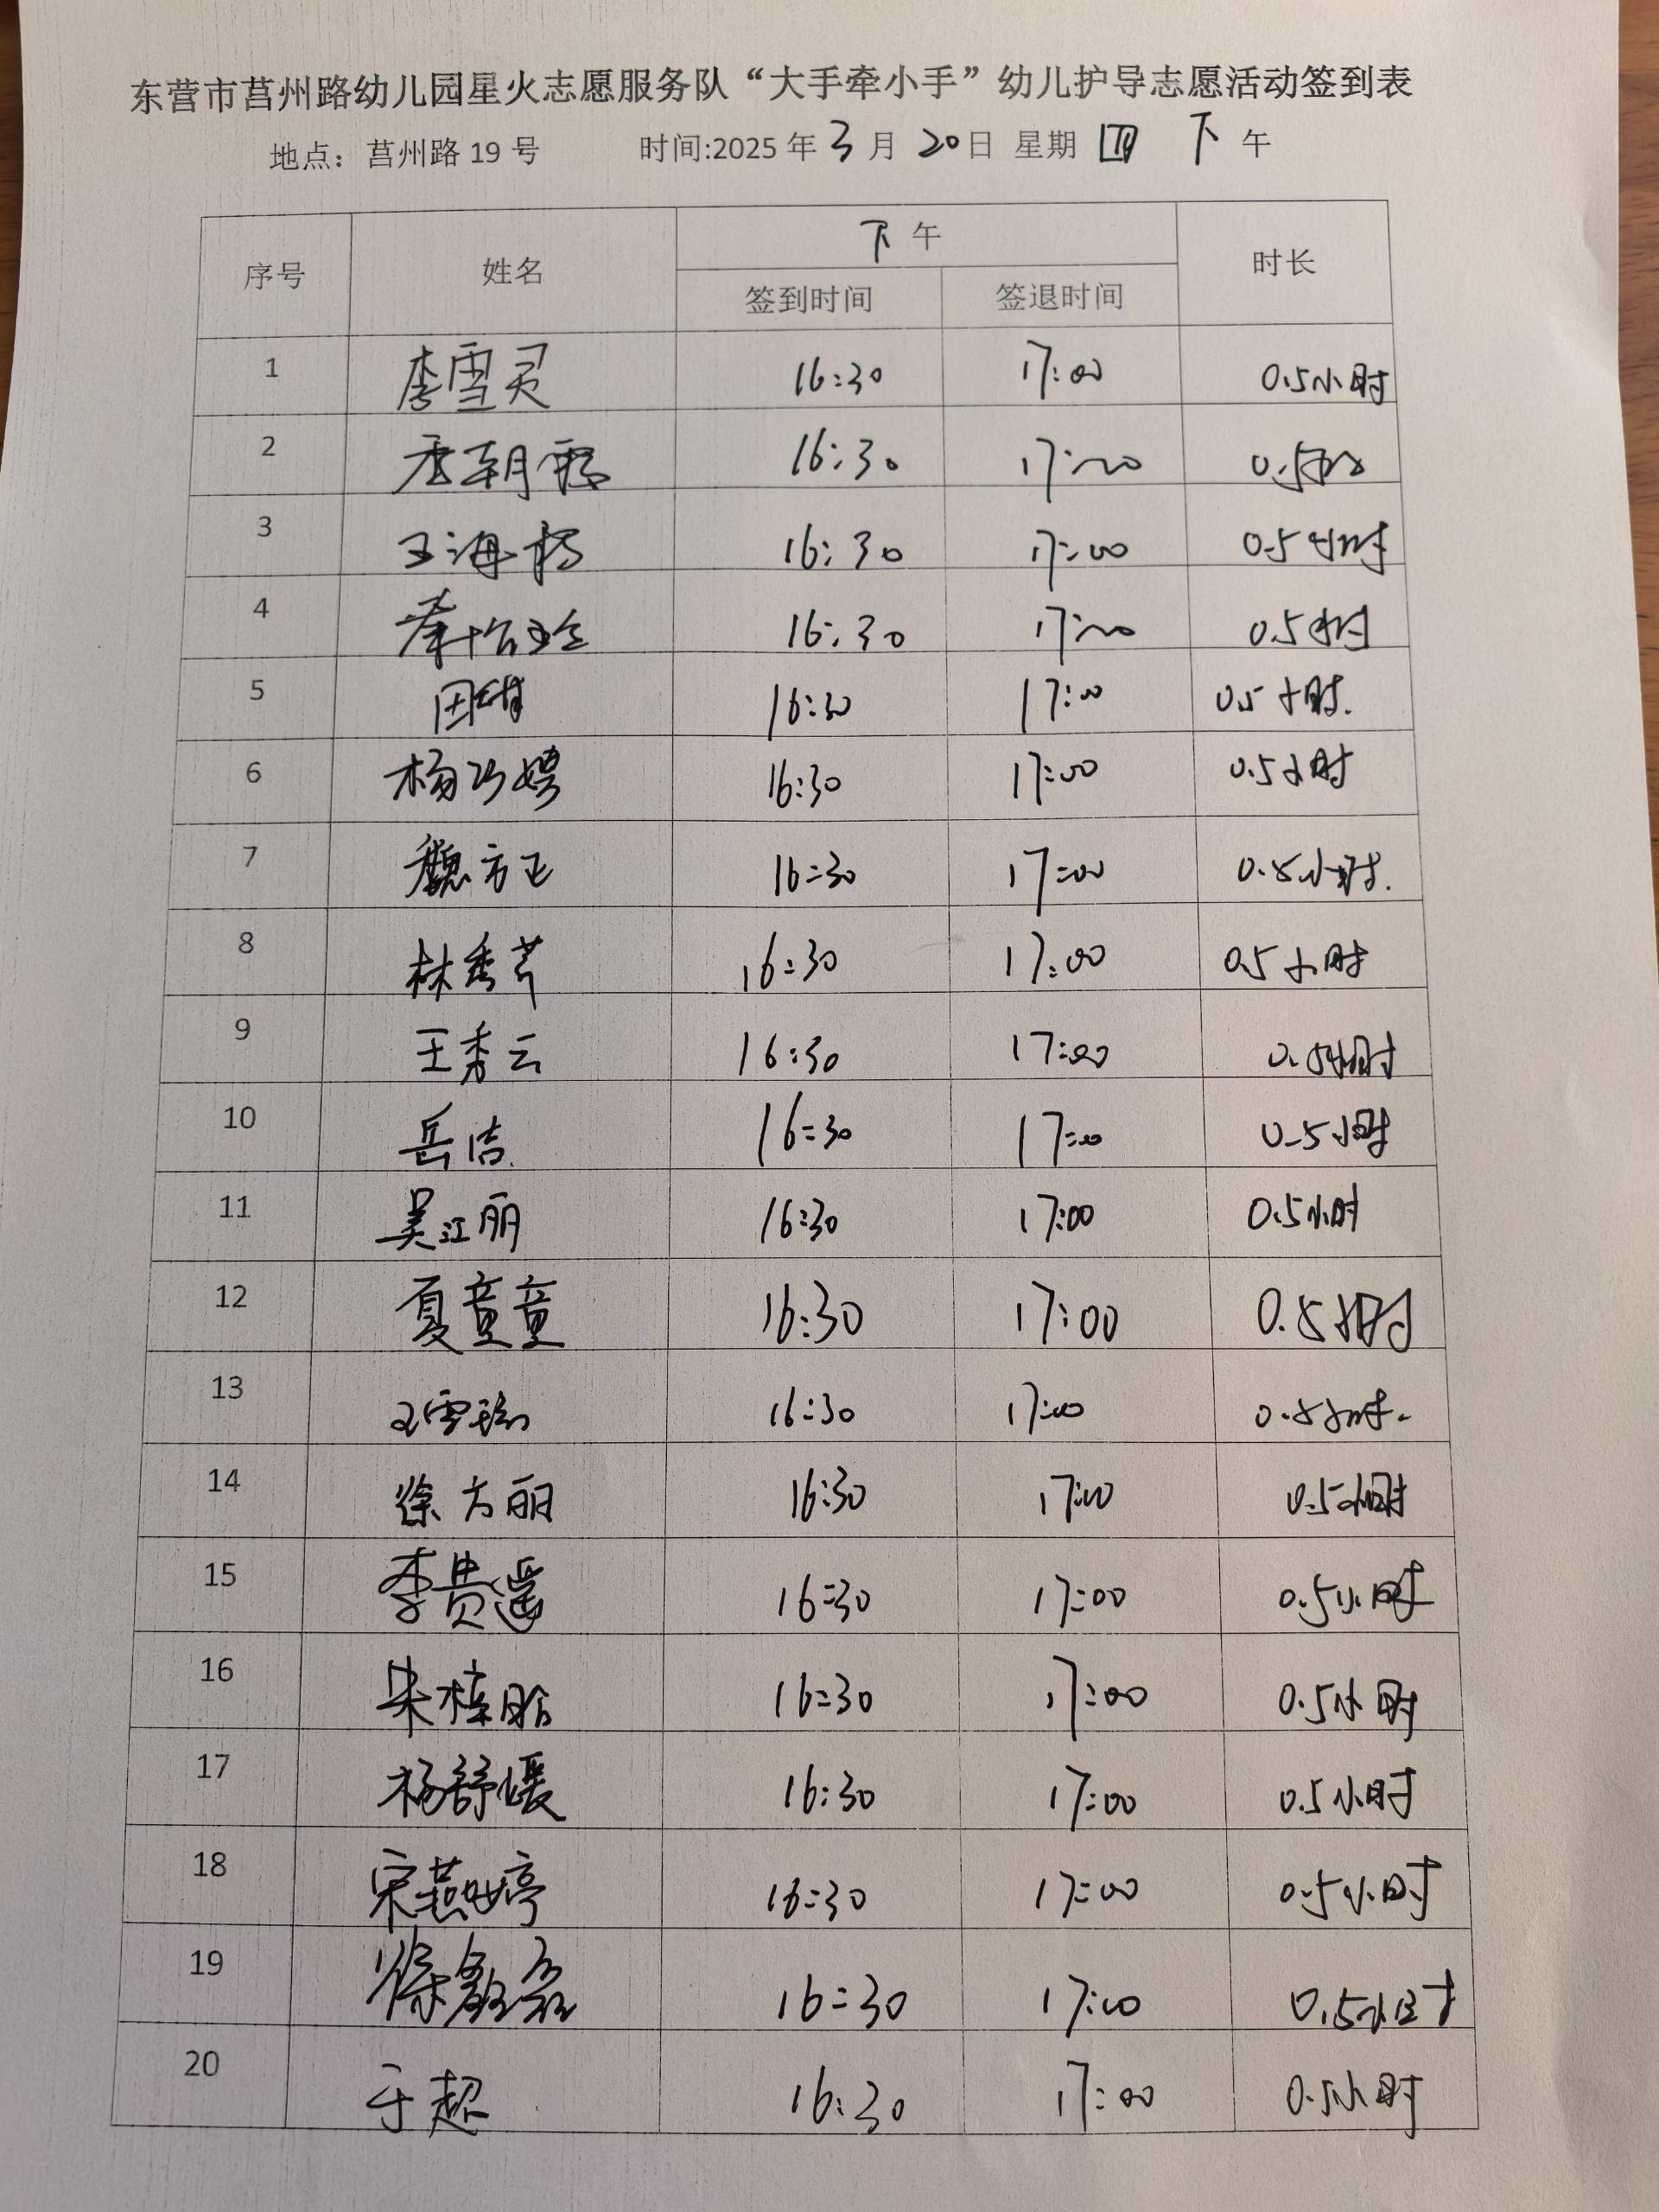 东营市莒州路幼儿园星火志愿服务队“大手牵小手”幼儿护导志愿活动签到表
地点：莒州路19号 时间:2025年3月20日 星期四 下午
序号 姓名 下午 时长
签到时间 签退时间
1 李雪灵 16:30 17:00 0.5小时
2 16:30 17:00 0.5小时
3 王海杨 16:30 17:00 0.5小时
4 16:30 17:00 0.5小时
5 田甜 16:30 17:00 0.5小时.
6 杨巧娉 16:30 17:00 0.5小时
7 魏方正 16:30 17:00 0.5小时.
8 林秀芹 16:30 17:00 0.5小时
9 王秀云 16:30 17:00 0.5小时
10 岳洁 16:30 17:00 0.5小时
11 吴江丽 16:30 17:00 0.5小时
12 夏童童 16:30 17:00 0.5小时
13 16:30 17:00 0.5小时.
14 徐方丽 16:30 17:00 0.5小时
15 李贵遥 16:30 17:00 0.5小时
16 朱梓贻 16:30 17:00 0.5小时
17 杨舒媛 16:30 17:00 0.5小时
18 宋燕婷 16:30 17:00 0.5小时
19 16:30 17:00 0.5小时
20 于超 16:30 17:00 0.5小时